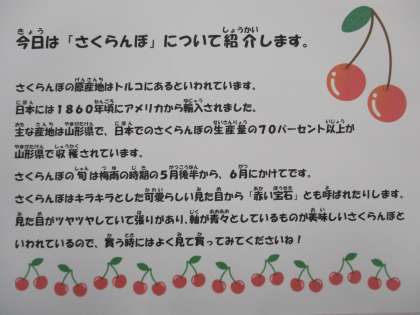 今日は「さくらんぼ」について紹介します。
さくらんぼの原産地はトルコにあるといわれています。
日本には1860年頃にアメリカから輸入されました。
主な産地は山形県で、日本でのさくらんぼの生産量の70パーセント以上が
山形県で収穫されています。
さくらんぼの旬は梅雨の時期の5月後半から、6月にかけてです。
さくらんぼはキラキラとした可愛らしい見た目から「赤い宝石」とも呼ばれたりします。
見た目がツヤツヤしていて張りがあり、軸が青々としているものが美味しいさくらんぼと
いわれているので、買う時にはよく見て買ってみてくださいね！